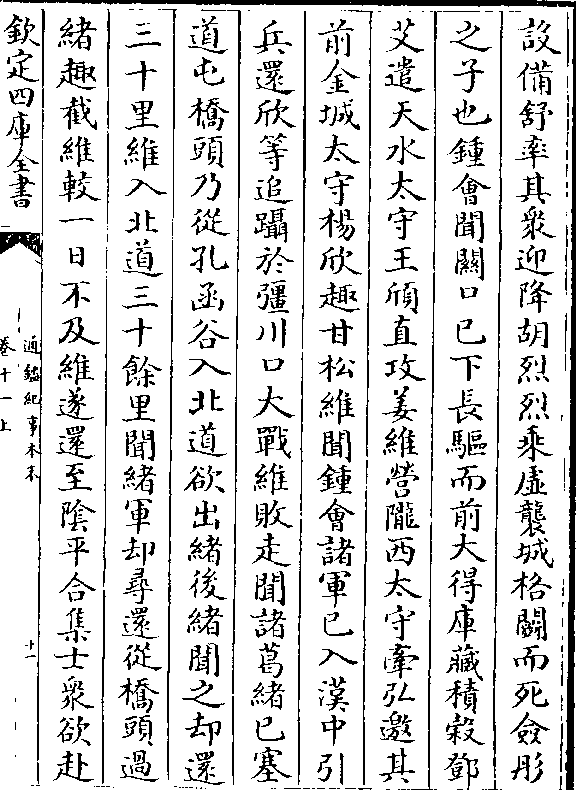 設備舒率其衆迎降胡烈烈乘虚襲城格鬭而死僉彤
之子也鍾會聞關口已下長驅而前大得庫藏積穀鄧
艾遣天水太守王頎直攻姜維營隴西太守牽弘邀其
前金城太守楊欣趣甘松維聞鍾會諸軍已入漢中引
兵還欣等追躡於彊川口大戰維敗走聞諸葛緒已塞
道屯橋頭乃從孔函谷入北道欲出緒後緒聞之却還
三十里維入北道三十餘里聞緒軍却尋還從橋頭過
緒趣截維較一日不及維遂還至陰平合集士衆欲赴
欽定四庫全書
通鑑紀事本末
卷十一上
十一